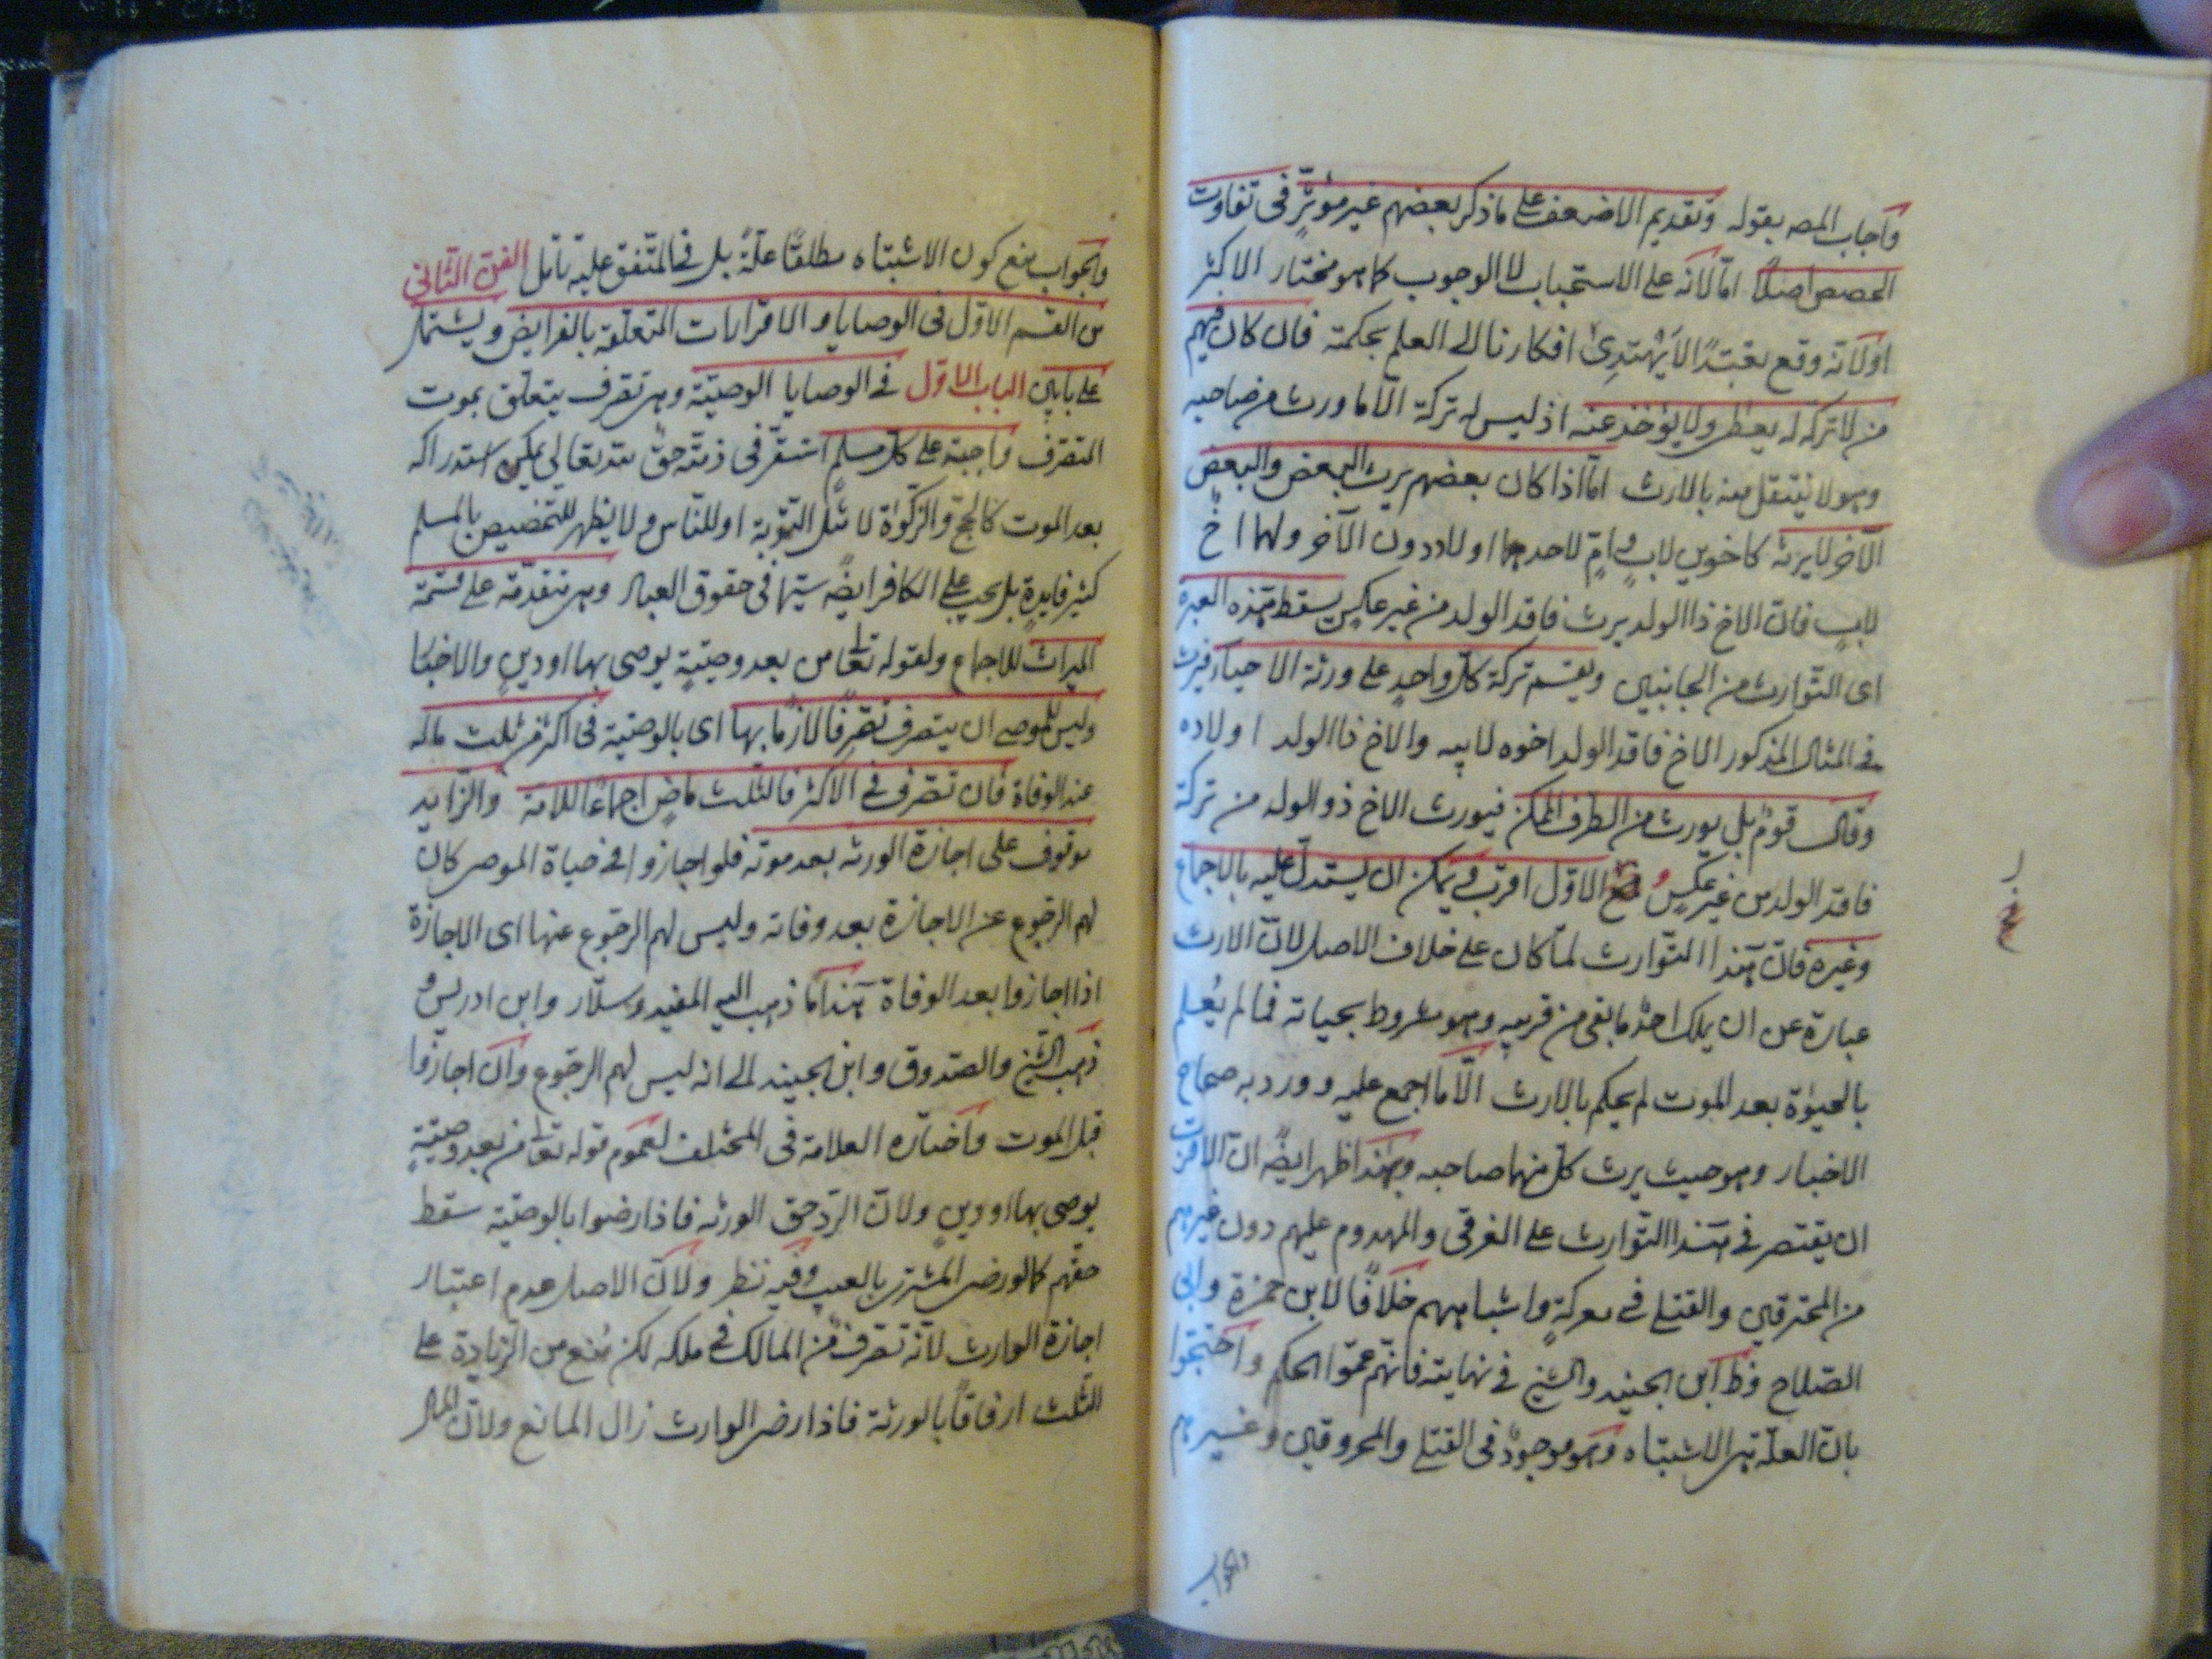 واجاب المصه بقوله وتقديم الاضعف على ما ذكر بعضهم غير مؤثر فى تفاوت
الحصص اصلاً امّا لانه على الاستحباب لا الوجوب كما هو مختار الاكثر
او لانّه وقع تعبّداً لا يهتدى افكارنا الى العلم بحكمة فان كان فيهم
من لا تركه له يعطى ولا يؤخذ عنه اذ ليس له تركة الّا ما ورث من صاحبه
وهو لا ينتقل منه بالارث امّا اذا كان بعضهم يرث البعض والبعض
الآخر لا يرثه كاخوين لابٍ وامٍّ لاحدهما اولاد دون الآخر ولهما اخٌ
لابٍ فانّ الاخ ذا الولد يرث فاقد الولد من غير عكسٍ يسقط هذه العبرة
اى التّوارث من الجانبين ويقسم تركة كلّ واحدٍ على ورثة الاحياء فيرث
فى المثال المذكور الاخ فاقد الولد اخوه لابيه والاخ ذا الولد اولاده
وقال قومٌ بل يورث من الطرف الممكن فيورث الاخ ذو الولد من تركة
فاقد الولد من غير عكسٍ و الاوّل اقرب ويمكن ان يستدلّ عليه بالاجماع
وغيره فانّ هذا التّوارث لمّا كان على خلاف الاصل لانّ الارث
عبارة عن ان يملك احدٌ ما بقى من قريبه وهو مشروط بحياته فما لم يُعلم
بالحيوة بعد الموت لم يحكم بالارث الّا ما اجمع عليه وورد به صحاح
الاخبار وهو حيث يرث كلّ منهما صاحبه وبهذا ظهر ايضاً انّ الاقرب
ان يقتصر فى هذا التّوارث على الغرقى والمهدوم عليهم دون غيرهم
من المحترقين والقتلى فى معركةٍ واشباههم خلافًا لابن حمزة وابى
الصّلاح وظ ابن الجنيد والشيخ فى نهايته فانّهم عمّوا الحكم واحتجّوا
بانّ العلّة هى الاشتباه وهو موجودٌ فى القتلى والمحروقين وغيرهم
والجواب
والجواب منع كون الاشتباه مطلقًا علّةً بل فى المتّفق عليه تأمّل الفنّ الثّانى
من القسم الاوّل فى الوصايا والاقرارات المتعلّقة بالفرايض ويشتمل
على بابين الباب الاوّل فى الوصايا الوصيّة وهى تصرف يتعلّق بموت
المتصرف واجبة على كلّ مسلم استقرّ فى ذمّته حقّ لله تعالى يمكن استدراكه
بعد الموت كالحجّ والزّكوة لا مثل التّوبة او للنّاس ولا يظهر للتخصيص بالمسلم
كثير فايدةٍ بل يجب على الكافر ايضًا سيّما فى حقوق العباد وهى متقدّمة على قسمة
الميراث للاجماع ولقوله تعا من بعد وصيّةٍ يوصى بها او دينٍ والاخبار
وليس للموصى ان يتصرف تصرفًا لازمًا بها اى بالوصيّة فى اكثر من ثلث ماله
عند الوفاة فان تصرف فى الاكثر فالثلث ماضٍ اجماعًا للامة والزّايد
موقوف على اجازة الورثه بعد موته فلو اجازوا فى حياة الموصى كان
لهم الرجوع عن الاجازة بعد وفاته وليس لهم الرجوع عنها اى الاجازة
اذا اجازوا بعد الوفاة هذا ما ذهب اليه المفيد وسلّار وابن ادريس و
ذهب الشّيخ والصّدوق وابن الجنيد الى انه ليس لهم الرجوع وان اجازوا
قبل الموت واختاره العلامة فى المختلف لعموم قوله تعا من بعد وصيّةٍ
يوصى بها او دينٍ ولانّ الردّ حق الورثه فاذا رضوا بالوصيّة سقط
حقّهم كما لو رضى المشترى بالعيب وفيه نظر ولانّ الاصل عدم اعتبار
اجازة الوارث لانّه تصرفٌ من المالك فى ملكه لكن مُنع من الزّيادة على
الثّلث ارفاقًا بالورثة فاذا رضى الوارث زال المانع ولانّ المال